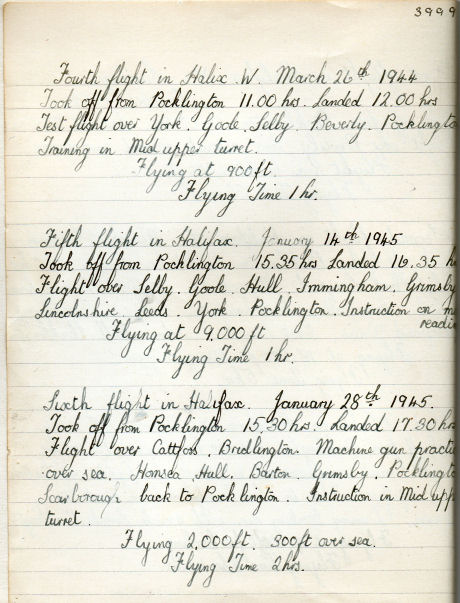 3999
Fourth flight in Halix. W. March 26th 1944
Took off from Pocklington 11.00 hrs. Landed 12.00 hrs
Test flight over York. Goole. Selby. Beverly. Pocklingto
Training in Mid upper turret.
Flying at 900ft.
Flying Time 1 hr.
Fifth flight in Halifax. January 14th 1945
Took off from Pocklington 15.35 hrs Landed 16.35 h
Flight over Selby. Goole. Hull. Immingham. Grimsby
Lincolnshire. Leeds. York. Pocklington. Instruction on m
readin
Flying at 9,000 ft
Flying Time 1 hr.
Sixth flight in Halifax. January 28th 1945.
Took off from Pocklington 15.30 hrs. Landed 17.30 hrs
Flight over Cattfoss. Bridlington. Machine gun practi
over sea. Hornsea. Hull. Barton. Grimsby. Pocklingto
Scarborough back to Pocklington. Instruction in Mid upp
turret.
Flying 2,000ft. 300ft over sea.
Flying Time 2hrs.